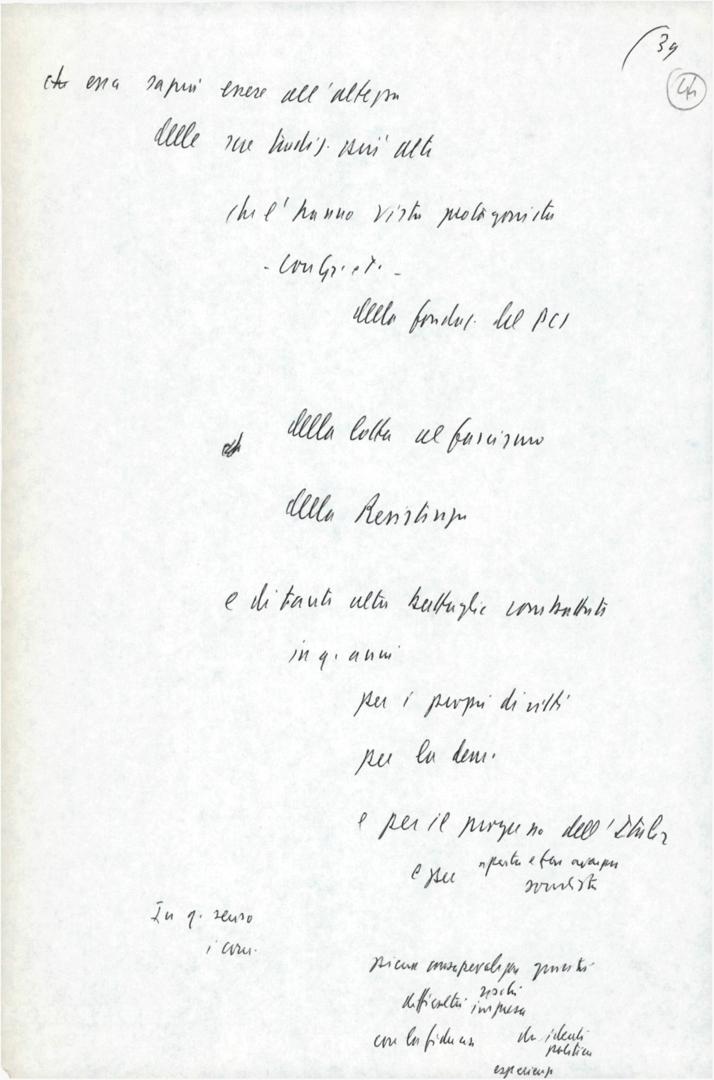 39
che essa saprà essere all'altezza
delle sue tradiz. più alte
che l'hanno vista protagonista
della fondaz. del PCI
della lotta al fascismo
della Resistenza
e di tante altre battaglie combattute
in q. anni
per i propri diritti
per la dem.
e per il progresso dell'Italia
e per
socialista
In q. senso
i com.
piena consapevolezza
difficoltà rischi
impresa
con la fiducia
politica
esperienza